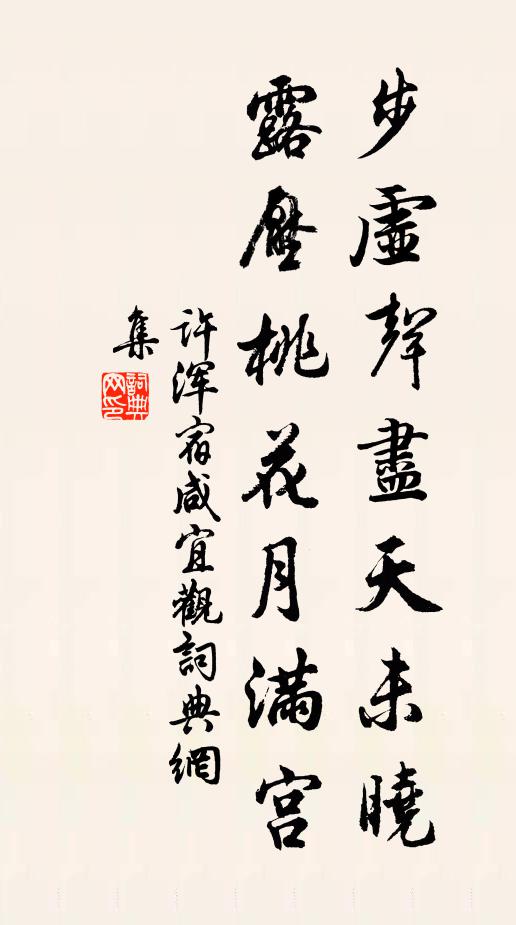 步虛聲盡天未曉
露壓桃花月滿宮
許渾宿咸宜觀詞典網
集
詞典
网印